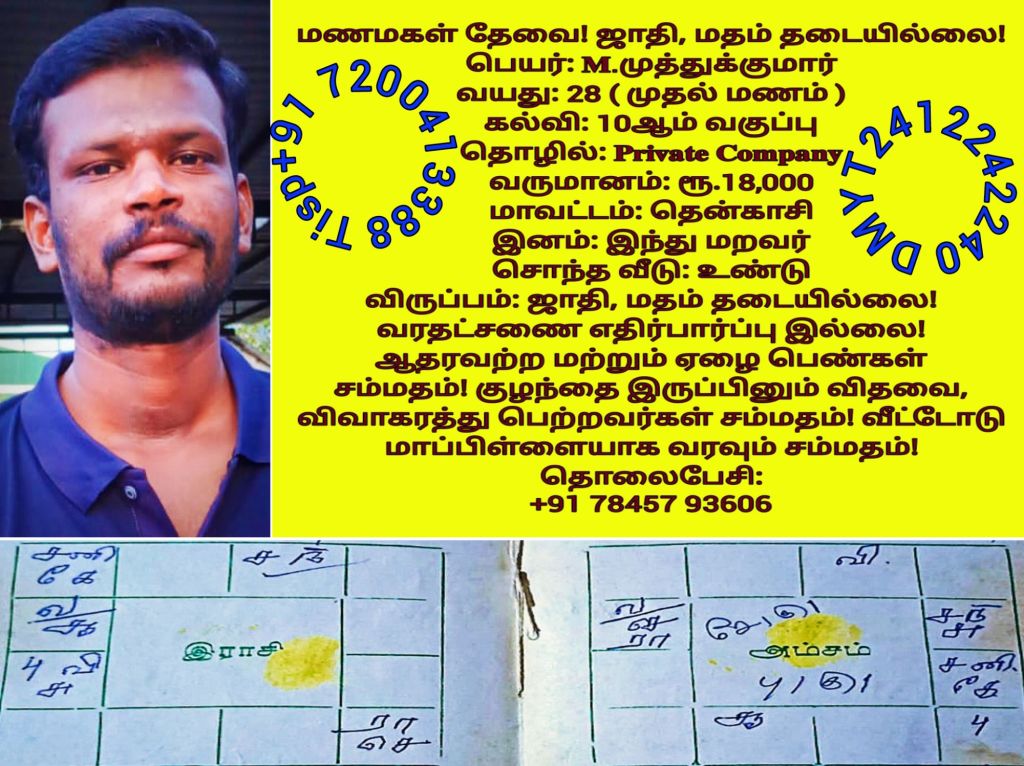 மணமகள் தேவை! ஜாதி, மதம் தடையில்லை!
பெயர்: M.முத்துக்குமார்
வயது: 28 ( முதல் மணம் )
கல்வி: 10ஆம் வகுப்பு
தொழில்: Private Company
வருமானம்: ரூ.18,000
மாவட்டம்: தென்காசி
இனம்: இந்து மறவர்
சொந்த வீடு: உண்டு
விருப்பம்: ஜாதி, மதம் தடையில்லை!
வரதட்சணை எதிர்பார்ப்பு இல்லை!
ஆதரவற்ற மற்றும் ஏழை பெண்கள்
சம்மதம்! குழந்தை இருப்பினும் விதவை,
விவாகரத்து பெற்றவர்கள் சம்மதம்! வீட்டோடு
மாப்பிள்ளையாக வரவும் சம்மதம்!
தொலைபேசி:
+91 78457 93606
Tisp+91 7200413388
DMyT2412242240
சனி
கே
ச ந்
ல
சுக்
இராசி
பு வி
சு
ரா
செ
வி.
ல
செ
ரா
சந்
சு
அம்சம்
சனி.
கே
சுக்
பு